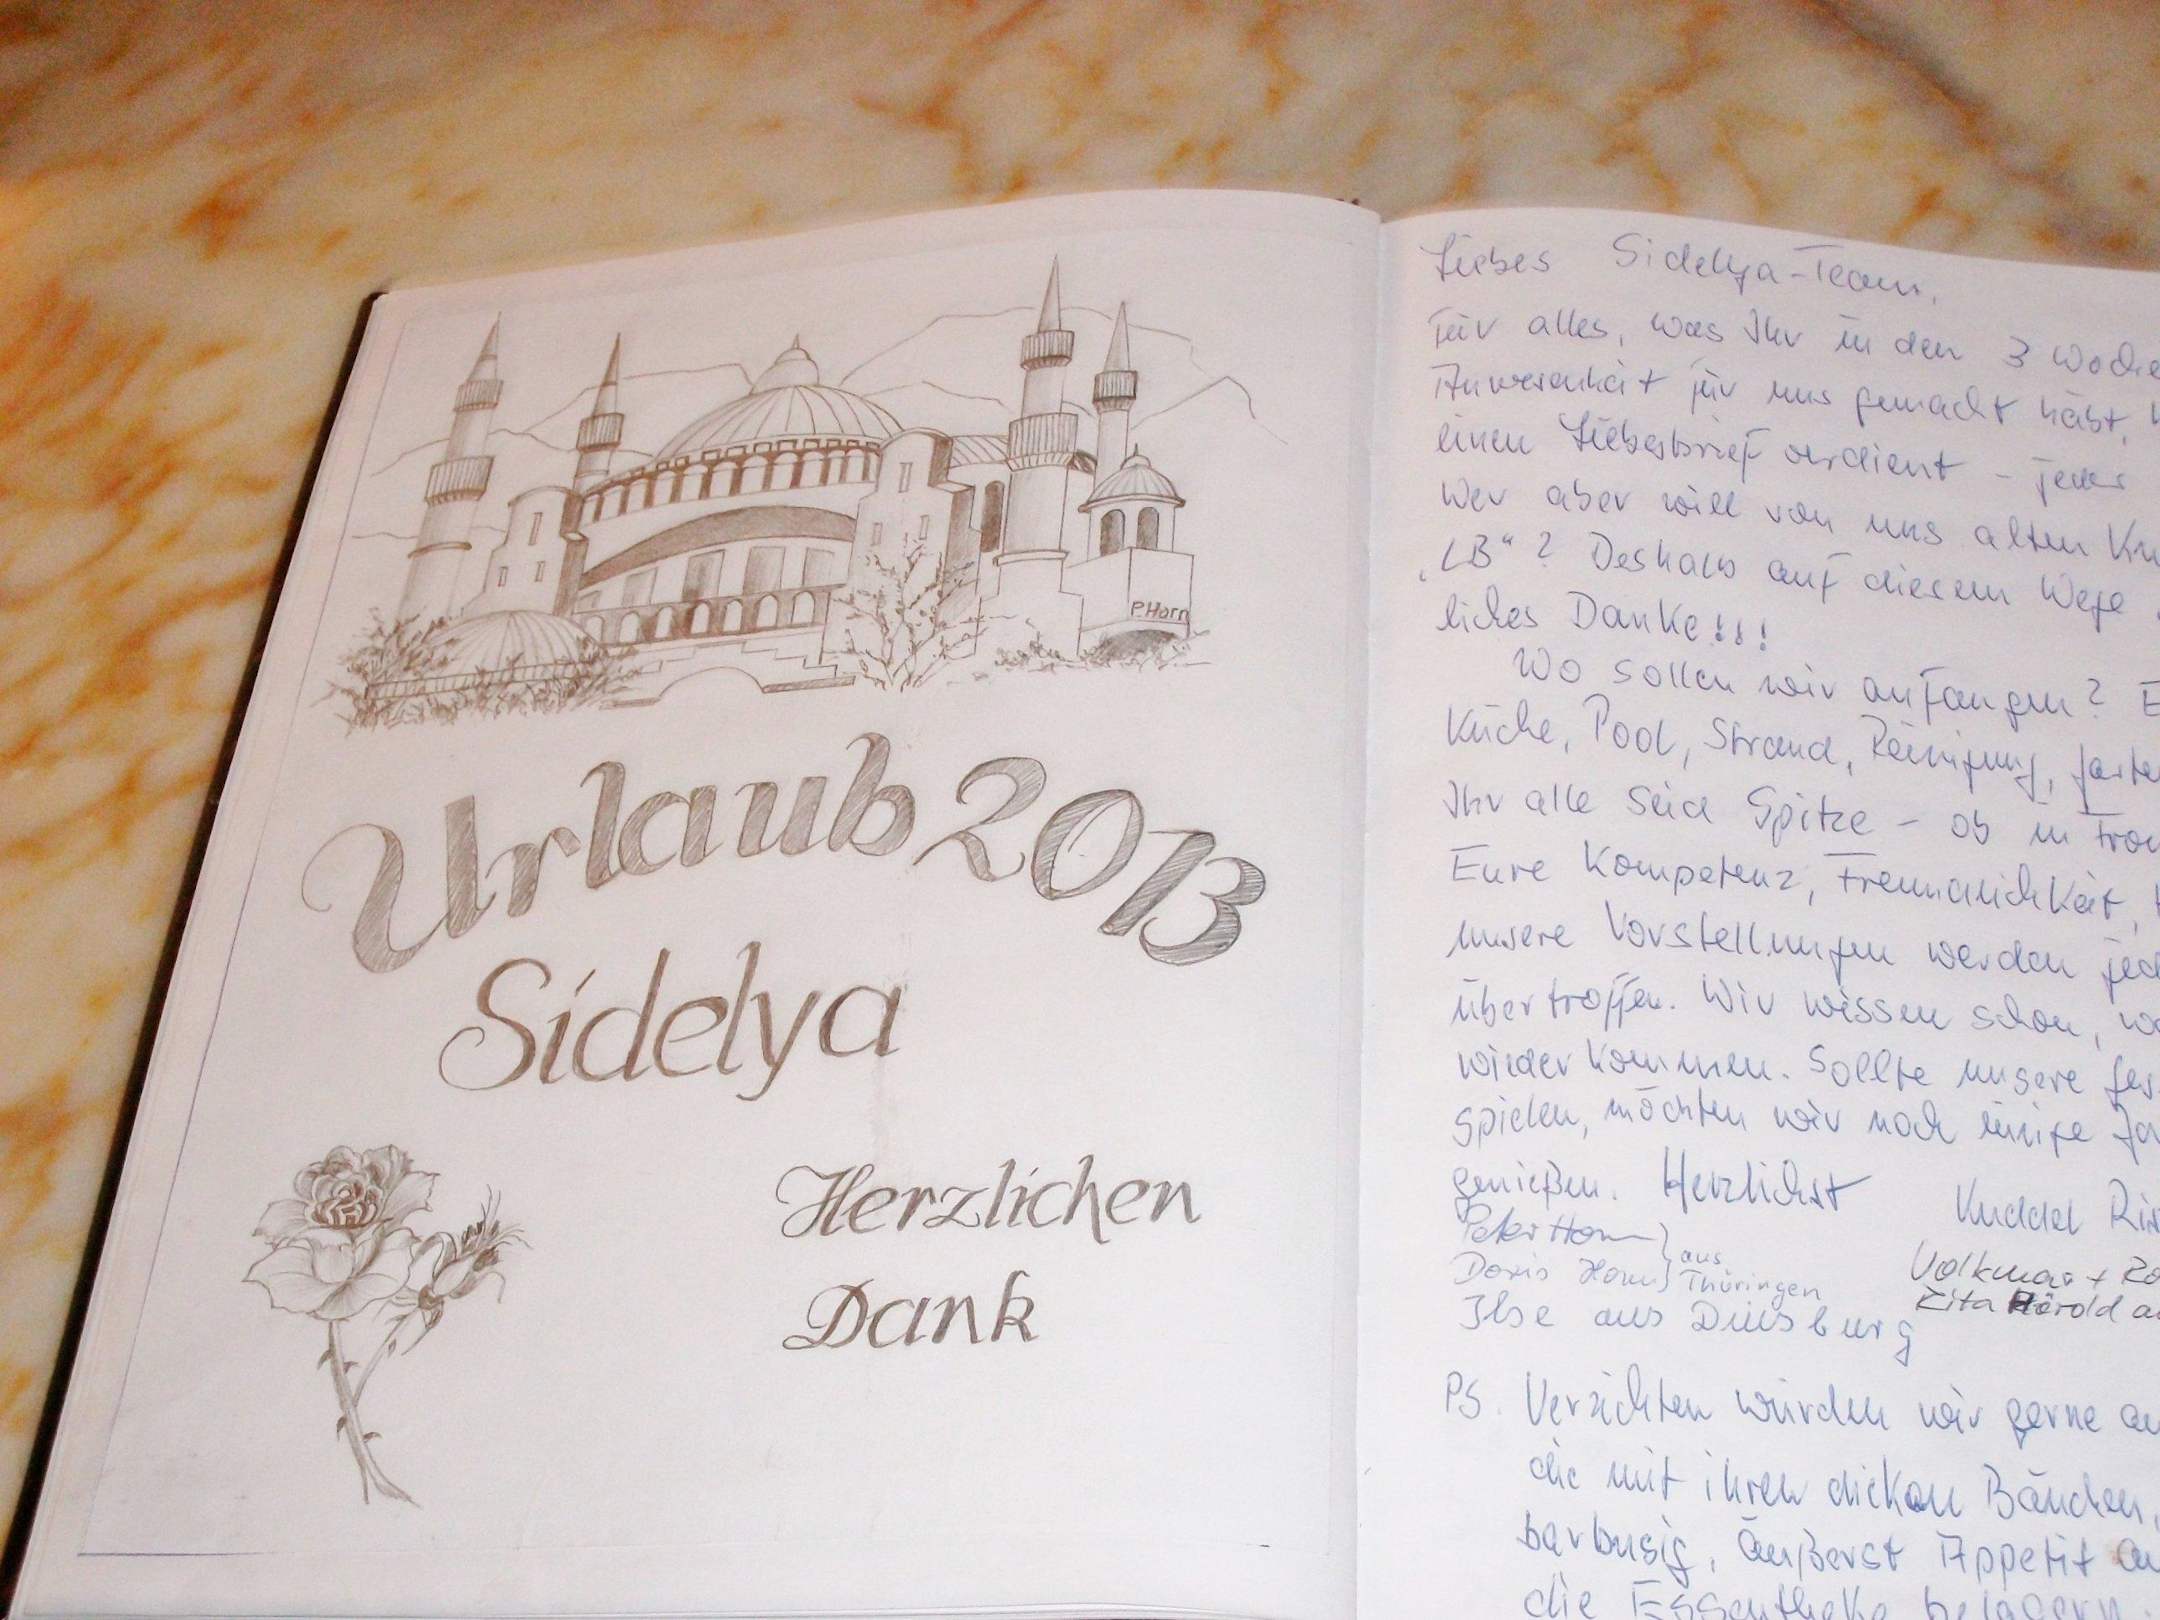 P.Horn
Urlaub 2013
Sidelya
Herzlichen
Dank
Liebes Sidelya-Team,
für alles, was Ihr in den 3 Woche
Anwesenheit für uns gemacht habt,
einen Liebesbrief verdient - jeder
Wer aber will von uns alten
„LB“? Deshalb auf diesem Wege
liches Danke!!!
Wo sollen wir anfangen? E
Küche, Pool, Strand, Reinigung, Garte
Ihr alle seid Spitze - ob in Fro
Eure Kompetenz, Freundlichkeit,
unsere Vorstellungen werden jed
übertroffen. Wir wissen schon, wa
wiederkommen. Sollte unsere Ges
spielen, möchten wir noch einige Ja
genießen. Herzlichst Kuddel
Peter Horn
Doris Horn } aus Thüringen
Volkmar + Ro
Ilse aus Duisburg
Rita Herold a
PS. Verzichten würden wir gerne au
die mit ihren dicken Bäuchen,
barbusig, äußerst Appetit
die Essentheke belagern.